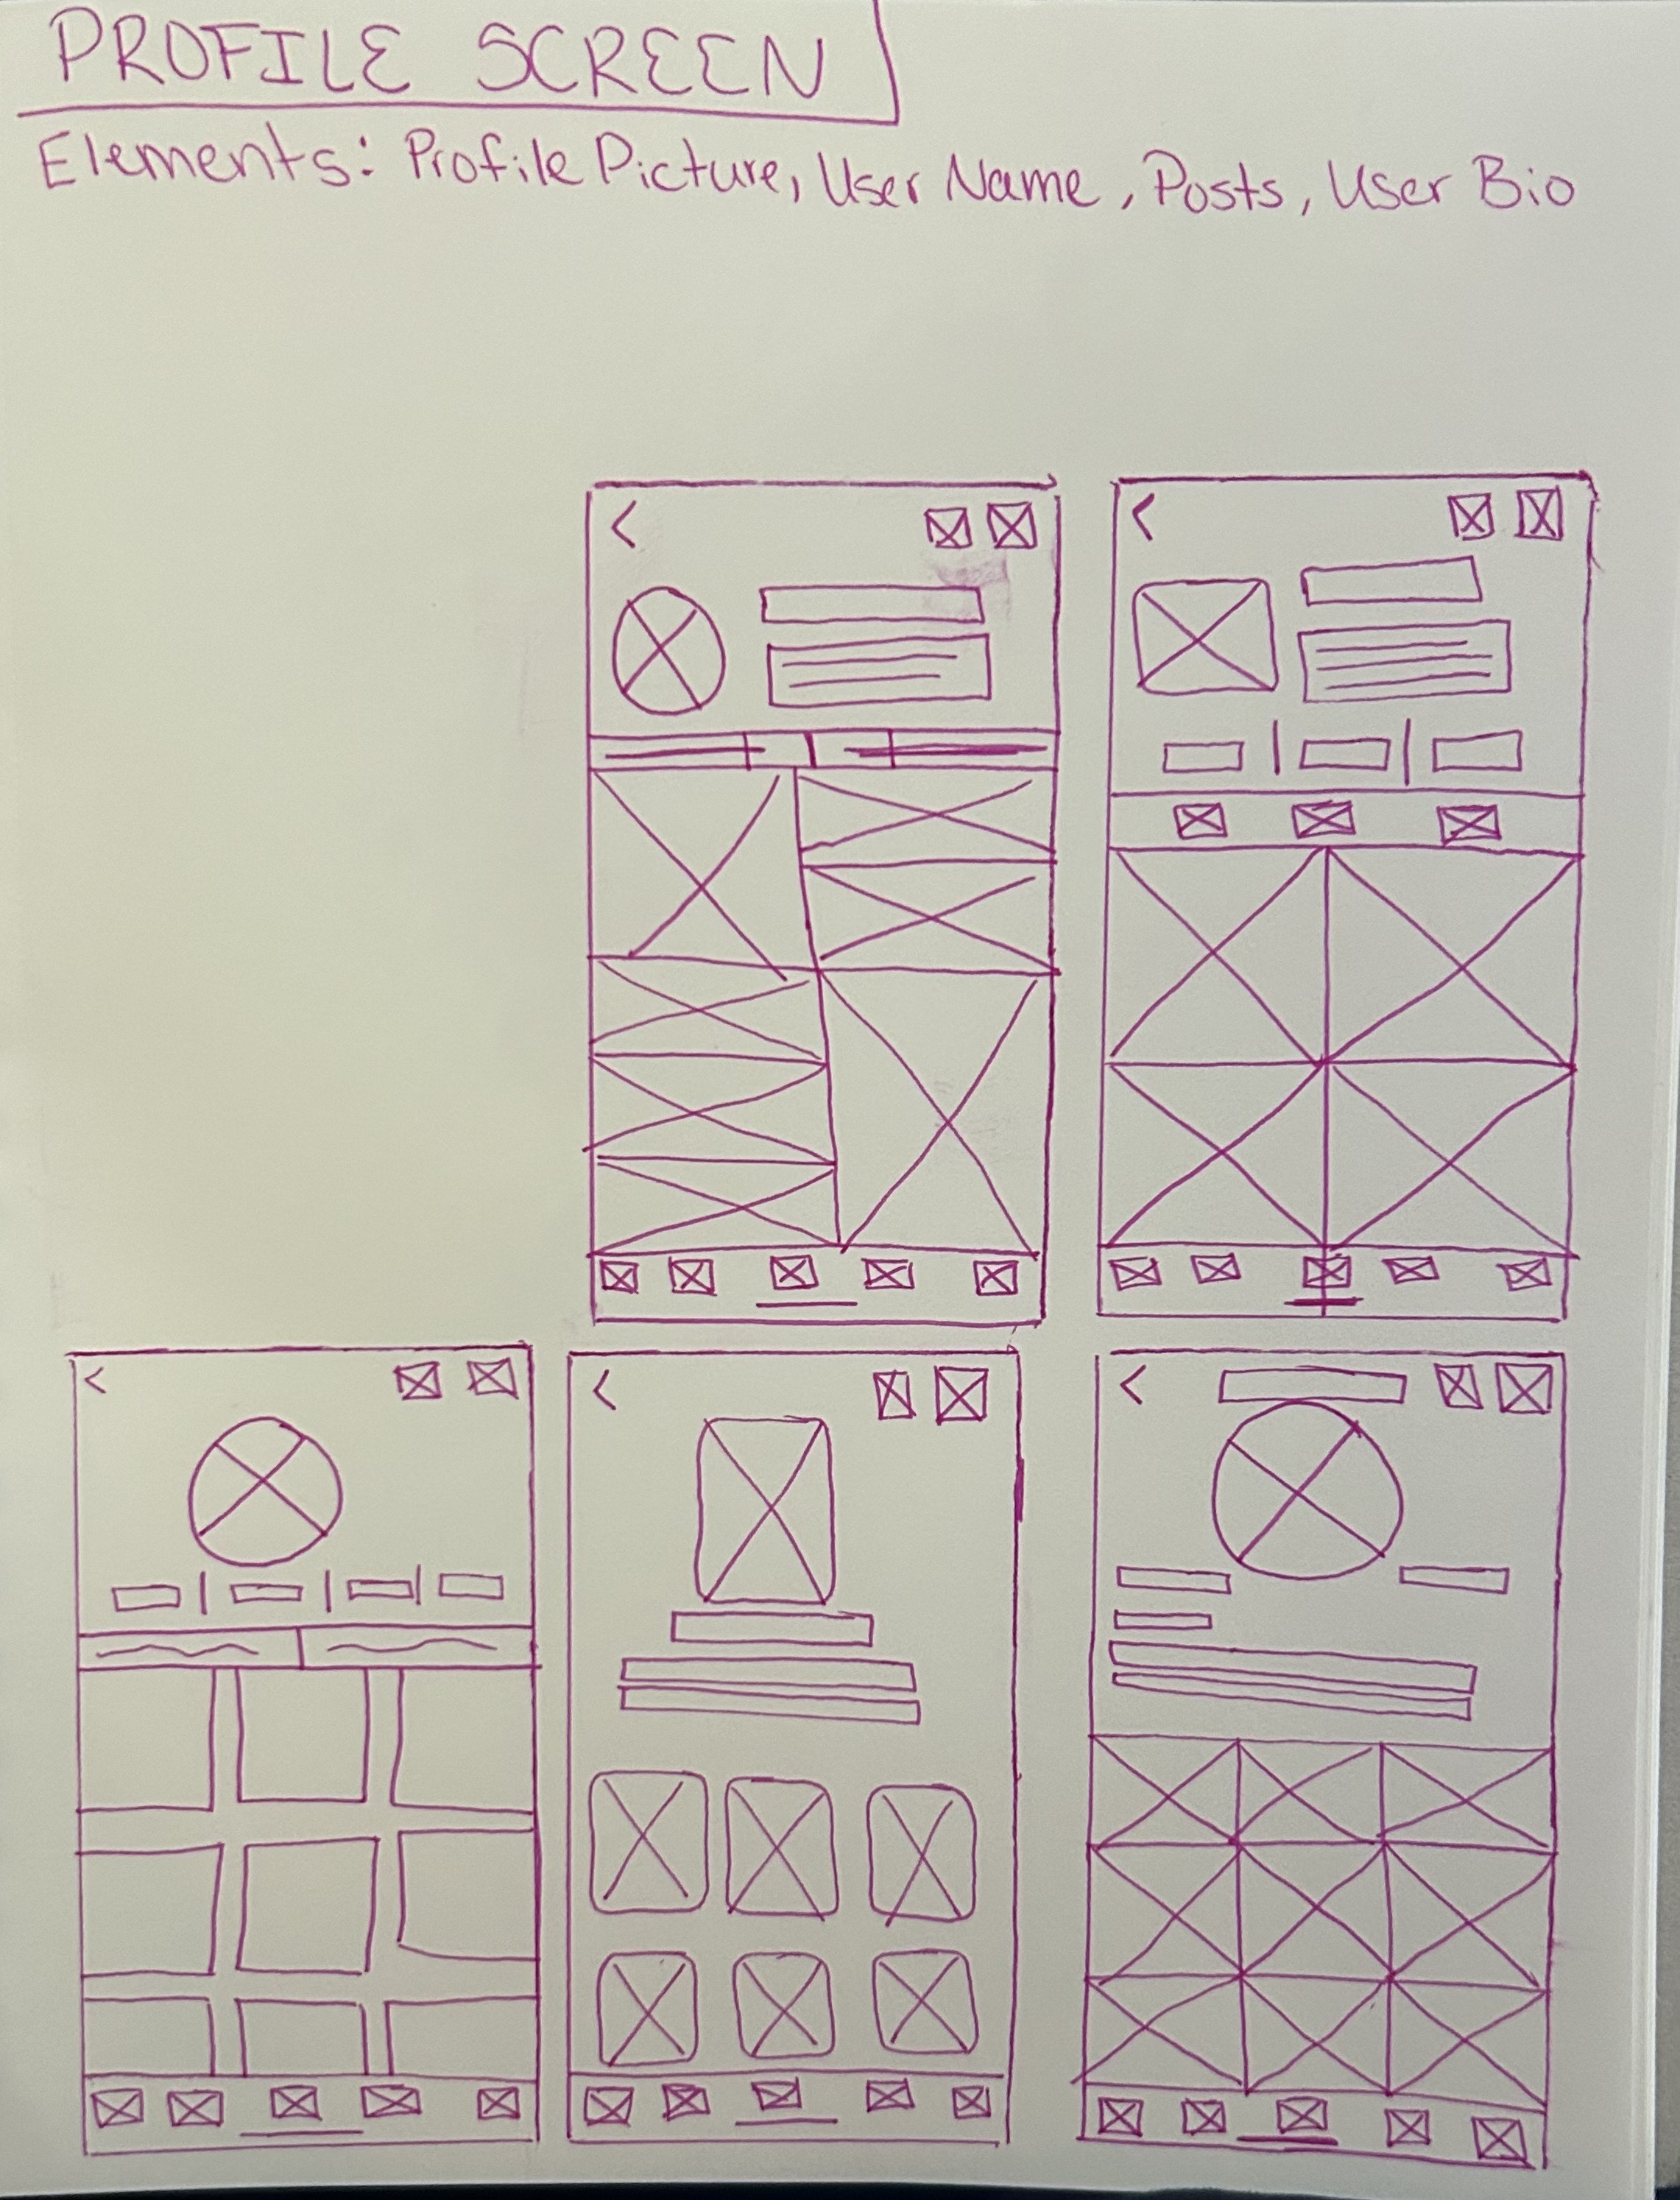 PROFILE SCREEN
Elements: Profile Picture, User Name, Posts, User Bio